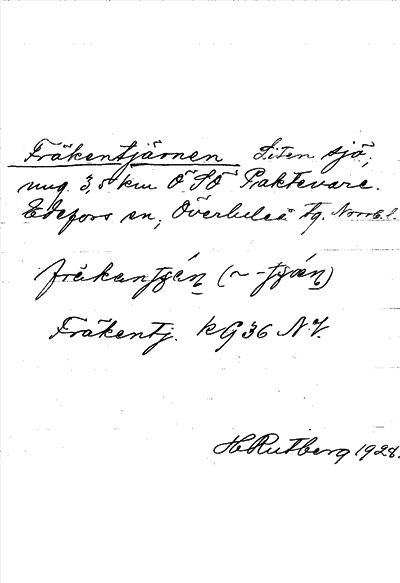 Fräkentjärnen Liten sjö,
ung. 3,5 km Ö.SÖ Praktevare.
Edefors sn, Överluleå tg. Norrb. l.
fräkantjän (~ -tjän)
Fräkentj. kG 36 NV.
H Rutberg 1928.